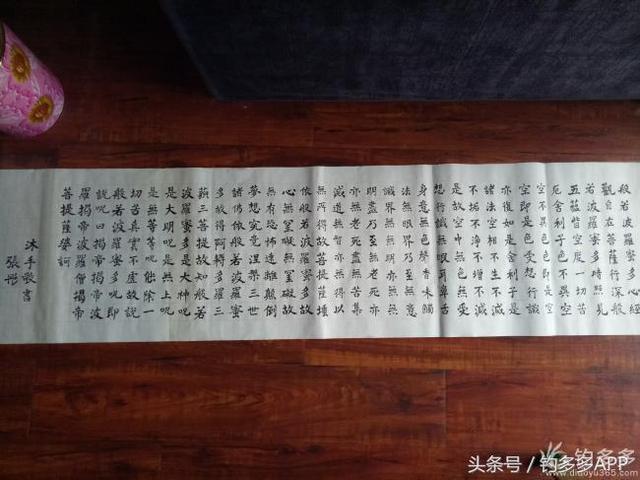 般若波羅蜜多心經
觀自在菩薩行深般
若波羅蜜多時照見
五蕴皆空度一切苦
厄舍利子色不異空
空不異色色即是空
空即是色受想行識
亦復如是舍利子是
諸法空相不生不滅
不垢不淨不增不減
是故空中無色無受
想行識無眼耳鼻舌
身意無色聲香味觸
法無眼界乃至無意
識界無無明亦無無
明盡乃至無老死亦
亦無老死盡無苦集
滅道無智亦無得以
無所得故菩提薩埵
依般若波羅蜜多故
心無罣礙無罣礙故
無有恐怖遠離顛倒
夢想究竟涅槃三世
諸仏依般若波羅蜜
多故得阿耨多羅三
藐三菩提故知般若
波羅蜜多是大神呪
是大明呪是無上呪
是無等等呪能除一
切苦真實不虛故說
般若波羅蜜多呪即
說呪曰揭帝揭帝波
羅揭帝波羅僧揭帝
菩提薩婆訶
沐手敬書
張彤
头条号 / 钓多多APP
钓多多
www.diaoyu365.com